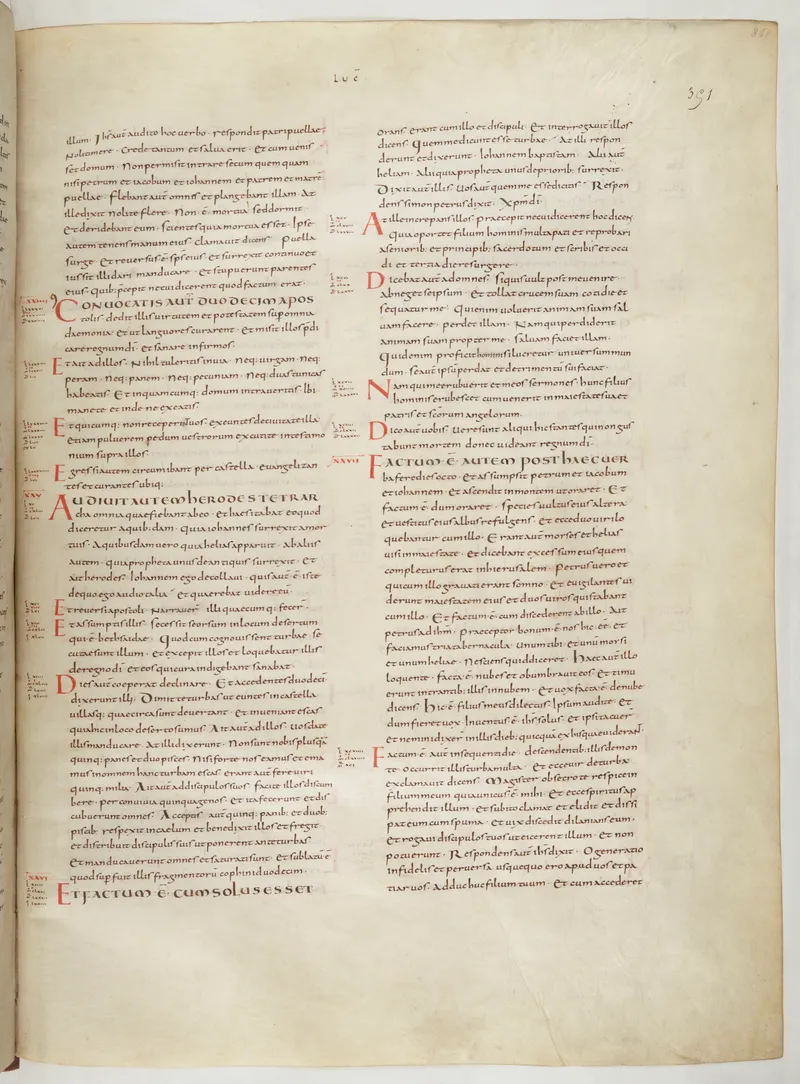 LUC
391
illum. Ihs aut audito hoc uerbo. respondit patri puellae.
Noli timere. Crede tantum et salua erit. Et cum uenis
set domum. Non permisit intrare secum quemquam
nisi petrum et iacobum et iohannem et patrem et matrē
puellae. Flebant aut omnes et plangebant illam. At
ille dixit nolite flere. Non. ē. mortua sed dormit.
Et deridebant eum. scientes quia mortua esset. Ipse
autem tenens manum eius clamauit dicens. Puella
surge. Et reuersus. ē. sps eius et surrexit continuo et
iussit illi dari manducare. Et stupuerunt parentes
eius. Quib: pcepit ne cui dicerent quod factum erat.
CONUOCATIS AUT DUODECIM APOS
tolis. dedit illis uirtutem et potestatem sup omnia
daemonia. et ut languores curarent. Et misit illos pdi
care regnum di. et sanare infirmos.
Et ait ad illos. Nihil tuleritis in uia. Neq: uirgam. neq:
peram. neq: panem. Neq: pecuniam. Neq: duas tunicas
habeatis. Et in quamcumq: domum intraueritis. Ibi
manete. et inde ne exeatis.
Et quicumq: non receperit uos. exeuntes de ciuitate illa.
etiam puluerem pedum uestrorum excutite in testimo
nium supra illos.
Egressi autem circumibant per castella. euangelizan
tes et curantes ubiq:
AUDIUIT AUTEM HERODES TETRAR
cha omnia quae fiebant ab eo. et haesitabat eo quod
diceretur a quib:dam. quia iohannes surrexit a mor
tuis. A quibusdam uero quia helias apparuit. Ab aliis
autem. quia propheta unus de antiquis surrexit. Et
ait herodes. Iohannem ego decollaui. quis aut. ē. iste
de quo ego audio talia. Et quaerebat uidere eū.
Et reuersi apostoli. Narrauer illi quaecumq: fecer.
Et assumptis illis. secessit seorsum in locum desertum
qui. ē. bethsaidae. Quod cum cognouissent turbae. se
cutae sunt illum. et excepit illos et loquebatur illis
de regno di. et eos qui cura indigebant sanabat.
Dies aut coeperat declinare. Et accedentes duodeci
dixerunt illi. Dimitte turbas ut euntes in castella.
uillasq: quae circa sunt deuertant. et inueniant escas
quia hic in loco deserto sumus. Ait aut ad illos. Uos date
illis manducare. At illi dixerunt. Non sunt nobis plusqā
quinq: panes et duo pisces. Nisi forte nos eamus et ema
mus in omnem hanc turbam escas. erant aut fere uiri
quinq: milia. Ait aut ad discipulos suos. facite illos discum
bere. per conuiuia quinquagenos. Et ita fecerunt et dis
cubuerunt omnes. Acceptis aut quinq: panib: et duob:
piscib: respexit in caelum et benedixit illis et fregit
et distribuit discipulis suis ut ponerent ante turbas.
Et manducauerunt omnes et saturati sunt. Et sublatū ē
quod supfuit illis fragmentorū cophini duodecim.
ET FACTUM. Ē. CUM SOLUS ESSET
orans erant cum illo et discipuli. Et interrogauit illos
dicens. Quem me dicunt esse turbae. At illi respon
derunt et dixerunt. Iohannem baptistam. Alii aut
heliam. Alii quia propheta unus de priorib: surrexit.
Dixit aut illis. Uos aut quem me esse dicitis. Respon
dens simon petrus dixit. Xpm di.
At ille increpans illos. praecepit ne cui dicerent hoc dicens.
Quia oportet filium hominis multa pati et reprobari
a seniorib: et principib: sacerdotum et scribis et occi
di et tertia die resurgere.
Dicebat aut ad omnes. si quis uult post me uenire.
Abneget se ipsum. Et tollat crucem suam cotidie et
sequatur me. Qui enim uoluerit animam suam sal
uam facere. perdet illam. Nam qui perdiderit
animam suam propter me. saluam faciet illam.
Quid enim proficit homini si lucretur uniuersum mun
dum. se aut ipsū perdat et detrimentū sui faciat.
Nam qui me erubuerit et meos sermones. hunc filius
hominis erubescet cum uenerit in maiestate sua et
patris et scorum angelorum.
Dico aut uobis. Uere sunt aliqui hic stantes qui non gus
tabunt mortem donec uideant regnum di.
FACTUM. Ē. AUTEM POST HAEC UER
ba fere dies octo. et assumpsit petrum et iacobum
et iohannem. et ascendit in montem ut oraret. Et
factum. ē. dum oraret. species uultus eius altera.
et uestitus eius albus refulgens. et ecce duo uiri lo
quebantur cum illo. Erant aut moses et helias
uisi in maiestate. et dicebant excessum eius quem
completurus erat in hierusalem. petrus uero et
qui cum illo grauati erant somno. et euigilantes ui
derunt maiestatem eius et duos uiros qui stabant
cum illo. Et factum. ē. cum discederent ab illo. Ait
petrus ad ihm. praeceptor bonum. ē. nos hic. eē. et
faciamus tria tabernacula. Unum tibi. et unū mosi
et unum heliae. Nesciens quid diceret. Haec aut illo
loquente. facta. ē. nubes et obumbrauit eos. et timu
erunt intrantib: illis in nubem. Et uox facta. ē. de nube
dicens. Hic. ē. filius meus dilectus. Ipsum audite. Et
dum fieret uox. Inuentus. ē. ihs solus. Et ipsi tacuer
et nemini dixer in illis dieb: quicquā ex his quae uideran
Factum. ē. aut in sequenti die. descendentib: illis de mon
te. Occurrit illis turba multa. Et ecce uir de turba
exclamauit dicens. Magister obsecro te respice in
filium meum quia unicus. ē. mihi. et ecce sps
prehendit illum. et subito clamat et elidit et dissi
pat eum cum spuma. et uix discedit dilanians eum.
Et rogaui discipulos tuos ut eicerent illum. et non
potuerunt. Respondens aut ihs dixit. O generatio
infidelis et peruersa. usquequo ero apud uos et pa
tiar uos. Adduc huc filium tuum. Et cum accederet
XXV
XXVI
XXVII